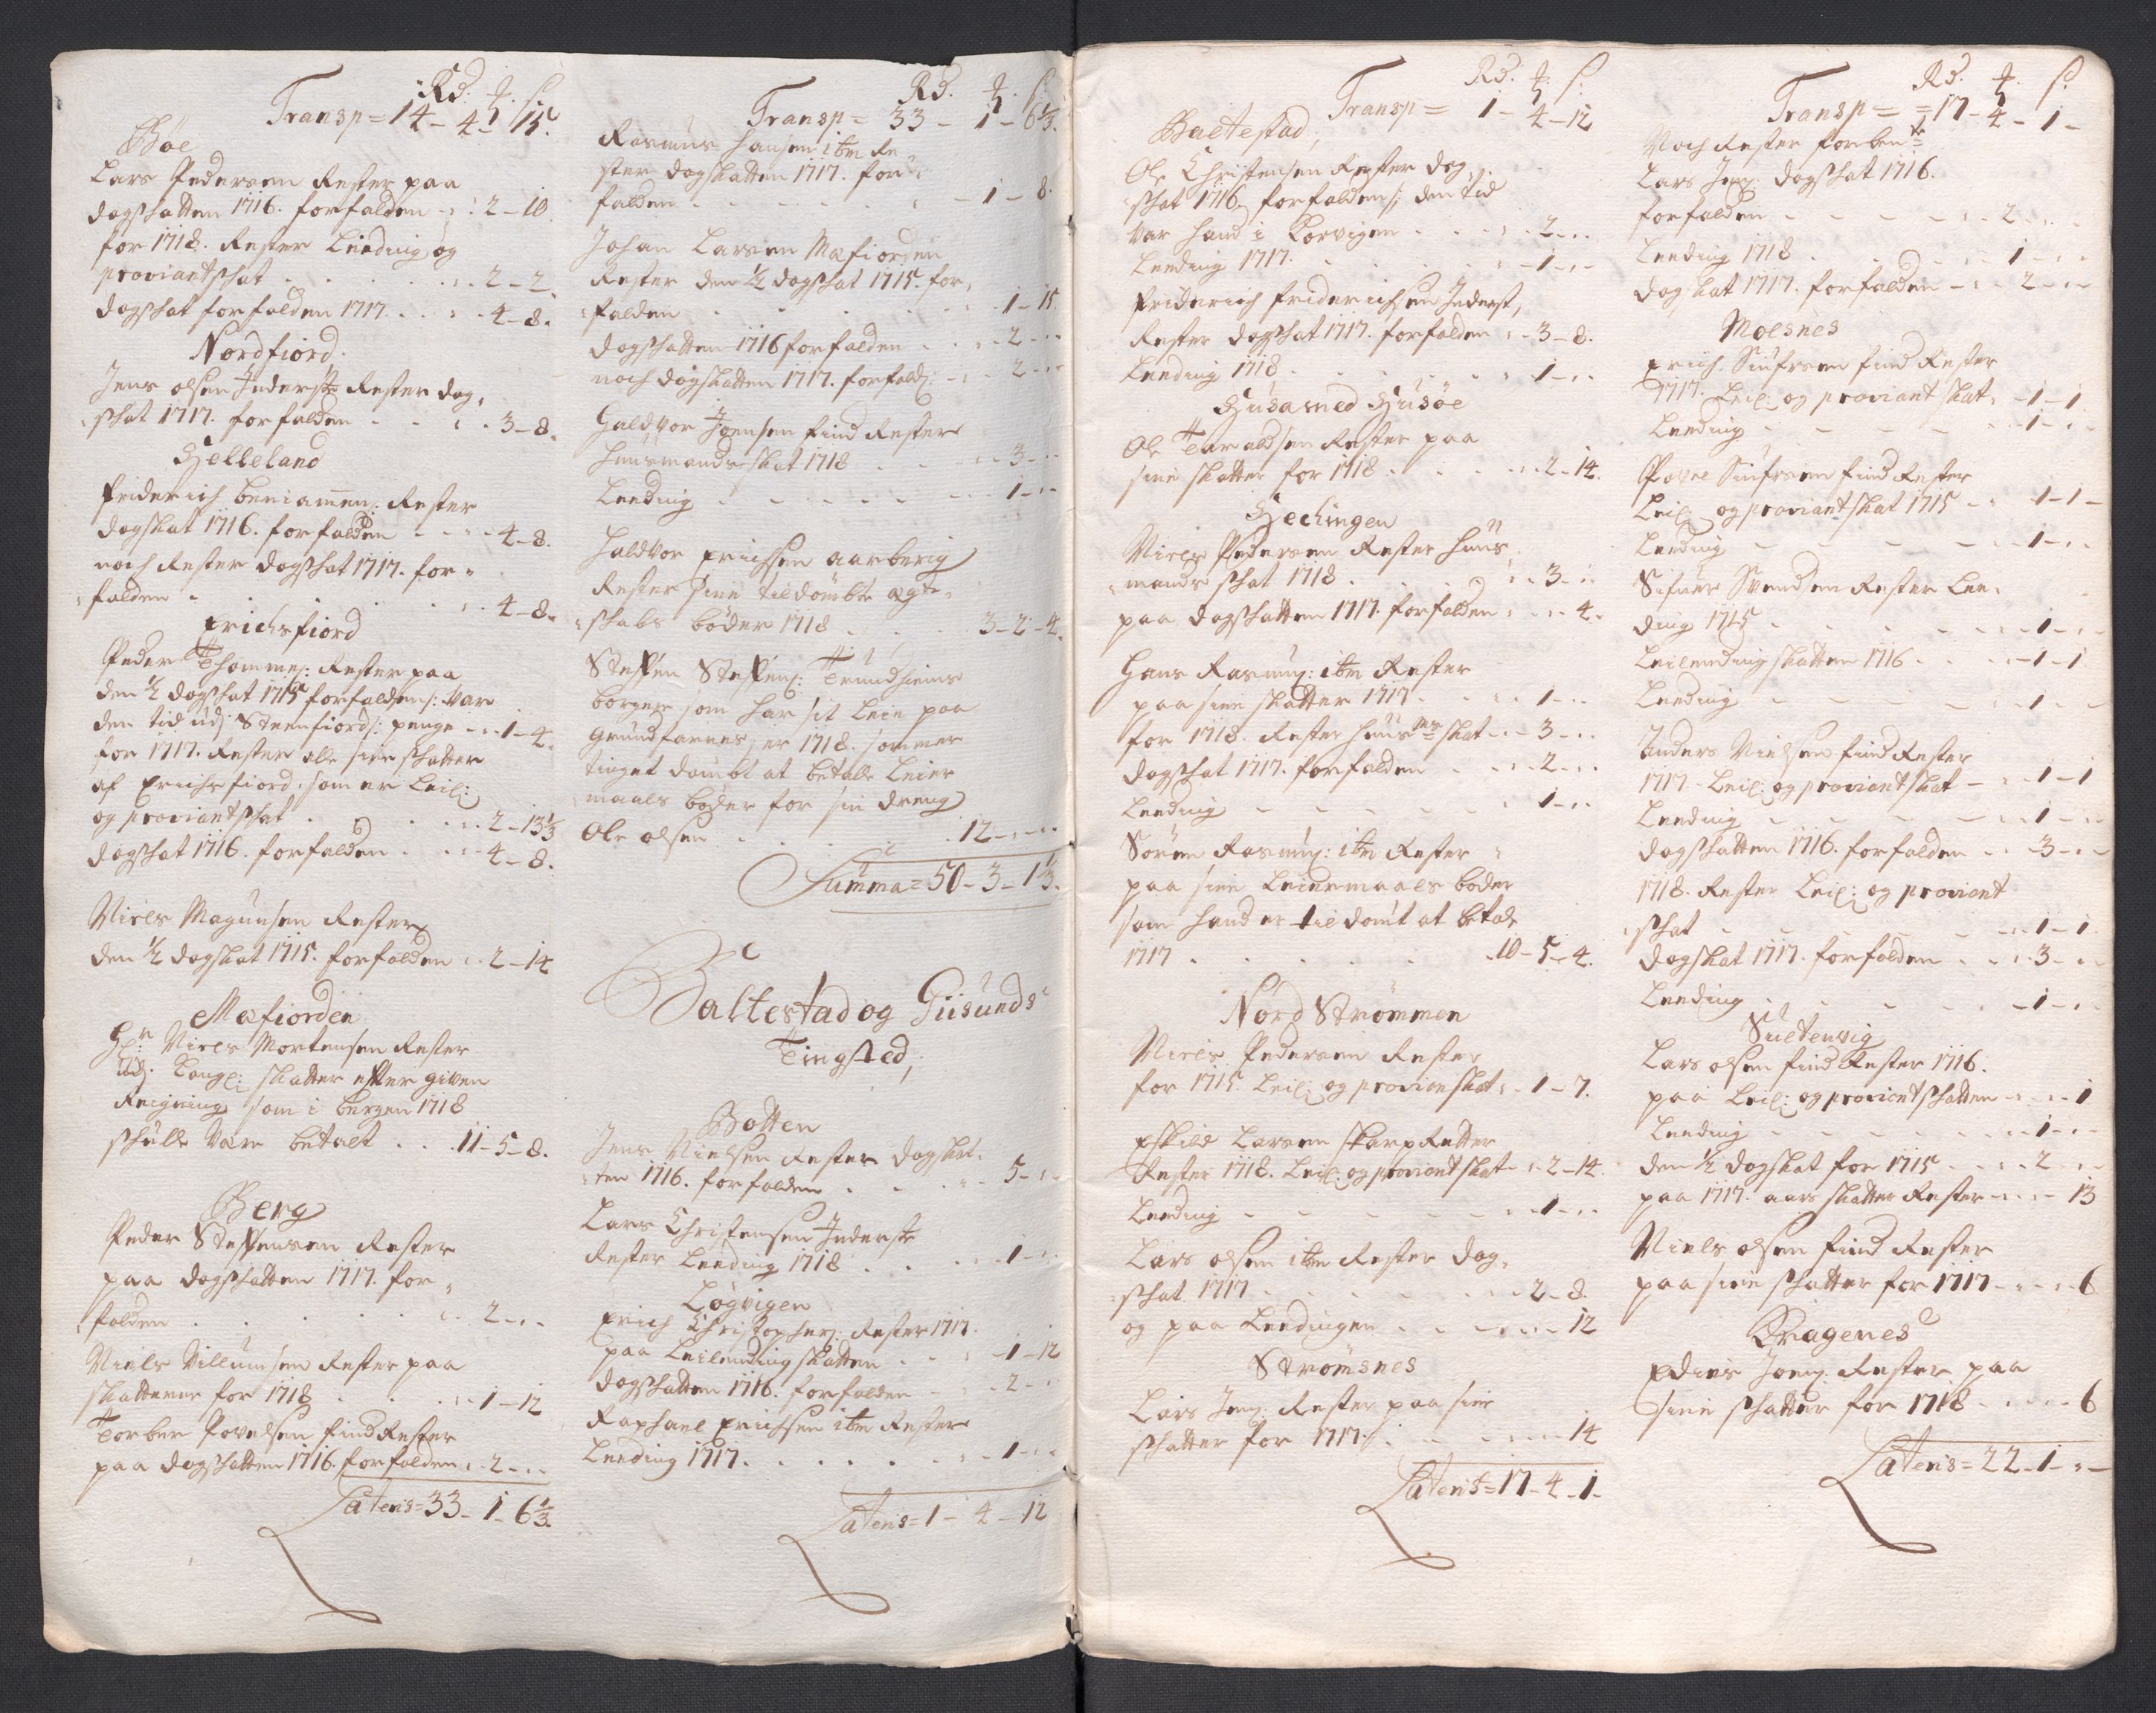 Rd. ₰ s.
Transp = 14 - 4 - 15.
Bøe
Lars Pedersen Rester paa
dagskatten 1716. forfalden - : 2 - 10.
for 1718. Rester Leeding og
proviantskat . . . . 2 - 2.
dagskat forfalden 1717. . . 4 - 8.
Nordfiord.
Jens olsen Inderste Rester dag,
skat 1717. forfalden - - . . 3 - 8.
Helleland
friderich beniamen: Rester
dagskat 1716. forfalden - - - 4 - 8.
noch Rester dagskat 1717. for=
falden - . . . . . 4 - 8.
Erichsfiord
Peder Thommes: Rester paa
den ½ dagskat 1715 forfalden /: var
den tid udj Steenfiord :/ penge - - 1 - 4.
for 1717. Rester alle sine skatter
af Erichsfiord, som er Leil:
og proviantskat . . . . 2 - 13⅓
dagskat 1716. forfalden . . . 4 - 8.
Niels Magunsen Rester
den ½ dagskat 1715. forfalden . . 2 - 14
Mefiorden
Hr: Niels Mortensen Rester
udj. Kongl: skatter efter given
Reigning som i bergen 1718
skulle være betalt . . . 11 - 5 - 8.
Berg
Peder Steffensen Rester
paa dagskatten 1717. for=
falden . . . . . . 2 - . .
Niels Villumsen Rester paa
skatterne for 1718 . . . . 1 - 12
Torber Povelsen find Rester
paa dagskatten 1716. forfalden . . 2 - . .
Lateris = 33 - 1 - 6⅓.
Rd. ₰ s.
Transp = 33 - 1 - 6⅓.
Rasmus hansen itm Re=
ster dagskatten 1717. for=
falden - - - - - - - 1 - 8.
Johan Larsen Mefiorden
Rester den ½ dagskat 1715. for,
falden . . . . . . 1 - 15.
dagskatten 1716 forfalden . . . 2 - . .
noch dagskatten 1717. forfald: - . 2 - . .
Haldvor Joensen find Rester
huusmands skat 1718 . . . . 3 - . .
Leeding - - - - - - - 1 - . .
Haldvor Erichsen aarberig
Rester sine tildømbte ægte=
skabs bøder 1718 . . . . 3 - 2 - 4.
Steffen Steffens: Trundhiems
borger som har sit leie paa
Grundfarnes, er 1718. sommer
tinget dømbt at betale Leier
maals bøder for sin dreng
Ole olsen . . . . . 12 - . . .
Summa = 50 - 3 - 1⅓.
Baltestad og Giisunds
Tingsted,
Botten
Jens Nielsen Rester dagskat,
ten 1716. forfalden . . . . 5 - . .
Lars Christensen Inderste
Rester Leeding 1718 . . . . 1 - . .
Løgvigen
Erich Christophers: Rester 1717.
paa Leilendings skatten . . . 1 - 12
dagskatten 1716. forfalden - . . 2 - . .
Raphael Erichsen itm Rester
Leeding 1717. . . . . . . 1 - . .
Lateris = 1 - 4 - 12
Rd. ₰ s.
Transp = 1 - 4 - 12
Baltestad,
Ole Christensen Rester dag,
skat 1716, forfalden /: den tid
var hand i Korvigen . . . . 2 - . .
Leeding 1717. . . . . . . 1 - . .
friderich friderichsen Inderst,
Rester dagskat 1717. forfalden . - 3 - 8.
Leeding 1718 - . . . . . . 1 - . .
Husa med Husøe
Ole Taraldsen Rester paa
sine skatter for 1718 . . . . 2 - 14.
Hechingen
Niels Pedersen Rester huus
mands skat 1718 . . . . . 3 - . .
paa dagskatten 1717. forfalden . . . 4.
Hans Rasmus: itm Rester
paa sine skatter 1717. . . . . 1 - . .
for 1718. Rester huusms: skat - . . 3 - . .
dagskat 1717. forfalden . . . 2 - . .
Leeding - - - - - - - 1 - . .
Søren Rasmus: itm Rester
paa sine Leiermaals bøder
som hand er tildømt at betale
1717 . . . . . . 10 - 5 - 4.
Nord Strømmen
Niels Pedersen Rester
for 1715. Leil: og provianskat . - 1 - 7.
Eskild Larsen skarpRetter
Rester 1718. Leil: og proviantskat - . 2 - 14.
Leeding - - - - - - - . 1 - . .
Lars olsen itm Rester dag,
skat 1717 . . . . . . . 2 - 8.
og paa Leedingen . . - . . . 12
Strømsnes
Lars Jens: Rester paa sine
skatter for 1717. . . . . . 14
Lateris = 17 - 4 - 1 -
Rd. ₰ s.
Transp = = 17 - 4 - 1 -
Noch Rester forbente
Lars Jens: dagskat 1716.
forfalden - - - - - . . 2 - . .
Leeding 1718 . . . . . . 1 - . .
dagskat 1717. forfalden - . . 2 - . .
Moesnes
Erich Siufrsen find Rester
1717. Leil: og proviant skat . - 1 - 1.
Leeding - - - - - - . 1 - . .
Povel Siufrsen find Rester
Leil: og proviantskat 1715 - . 1 - 1 -
Leeding - - - - - - . 1 - . .
Sifuer Svendsen Rester Lee,
ding 1715 . . . . . . . 1 - . .
Leilendings skatten 1716 . . . - 1 - 1
Leeding - - - - - - . 1 - . .
Anders Nielsen find Rester
1717. Leil: og proviantskat - . 1 - 1
Leeding - - - - - - . 1 - . .
dagskatten 1716. forfalden . . - 3 - . .
1718. Rester Leil: og proviant
skat - - - - - - . 1 - 1
dagskat 1717. forfalden . . . 3 - . .
Leeding - - - - - - - 1 - . .
Sultenvig
Lars olsen find Rester 1716.
paa Leil: og proviantskatten - . . . 1
Leeding - - - - - - . 1 - . .
den ½ dagskat for 1715 - . . . 2 - . .
paa 1717. aars skatter Rester - . . - 13
Niels olsen find Rester
paa sine skatter for 1717 - . . - 6
Kragenes
Edies Joens: Rester paa
sine skatter for 1718 - . . . . 6
Lateris = 22 - 1 - . -